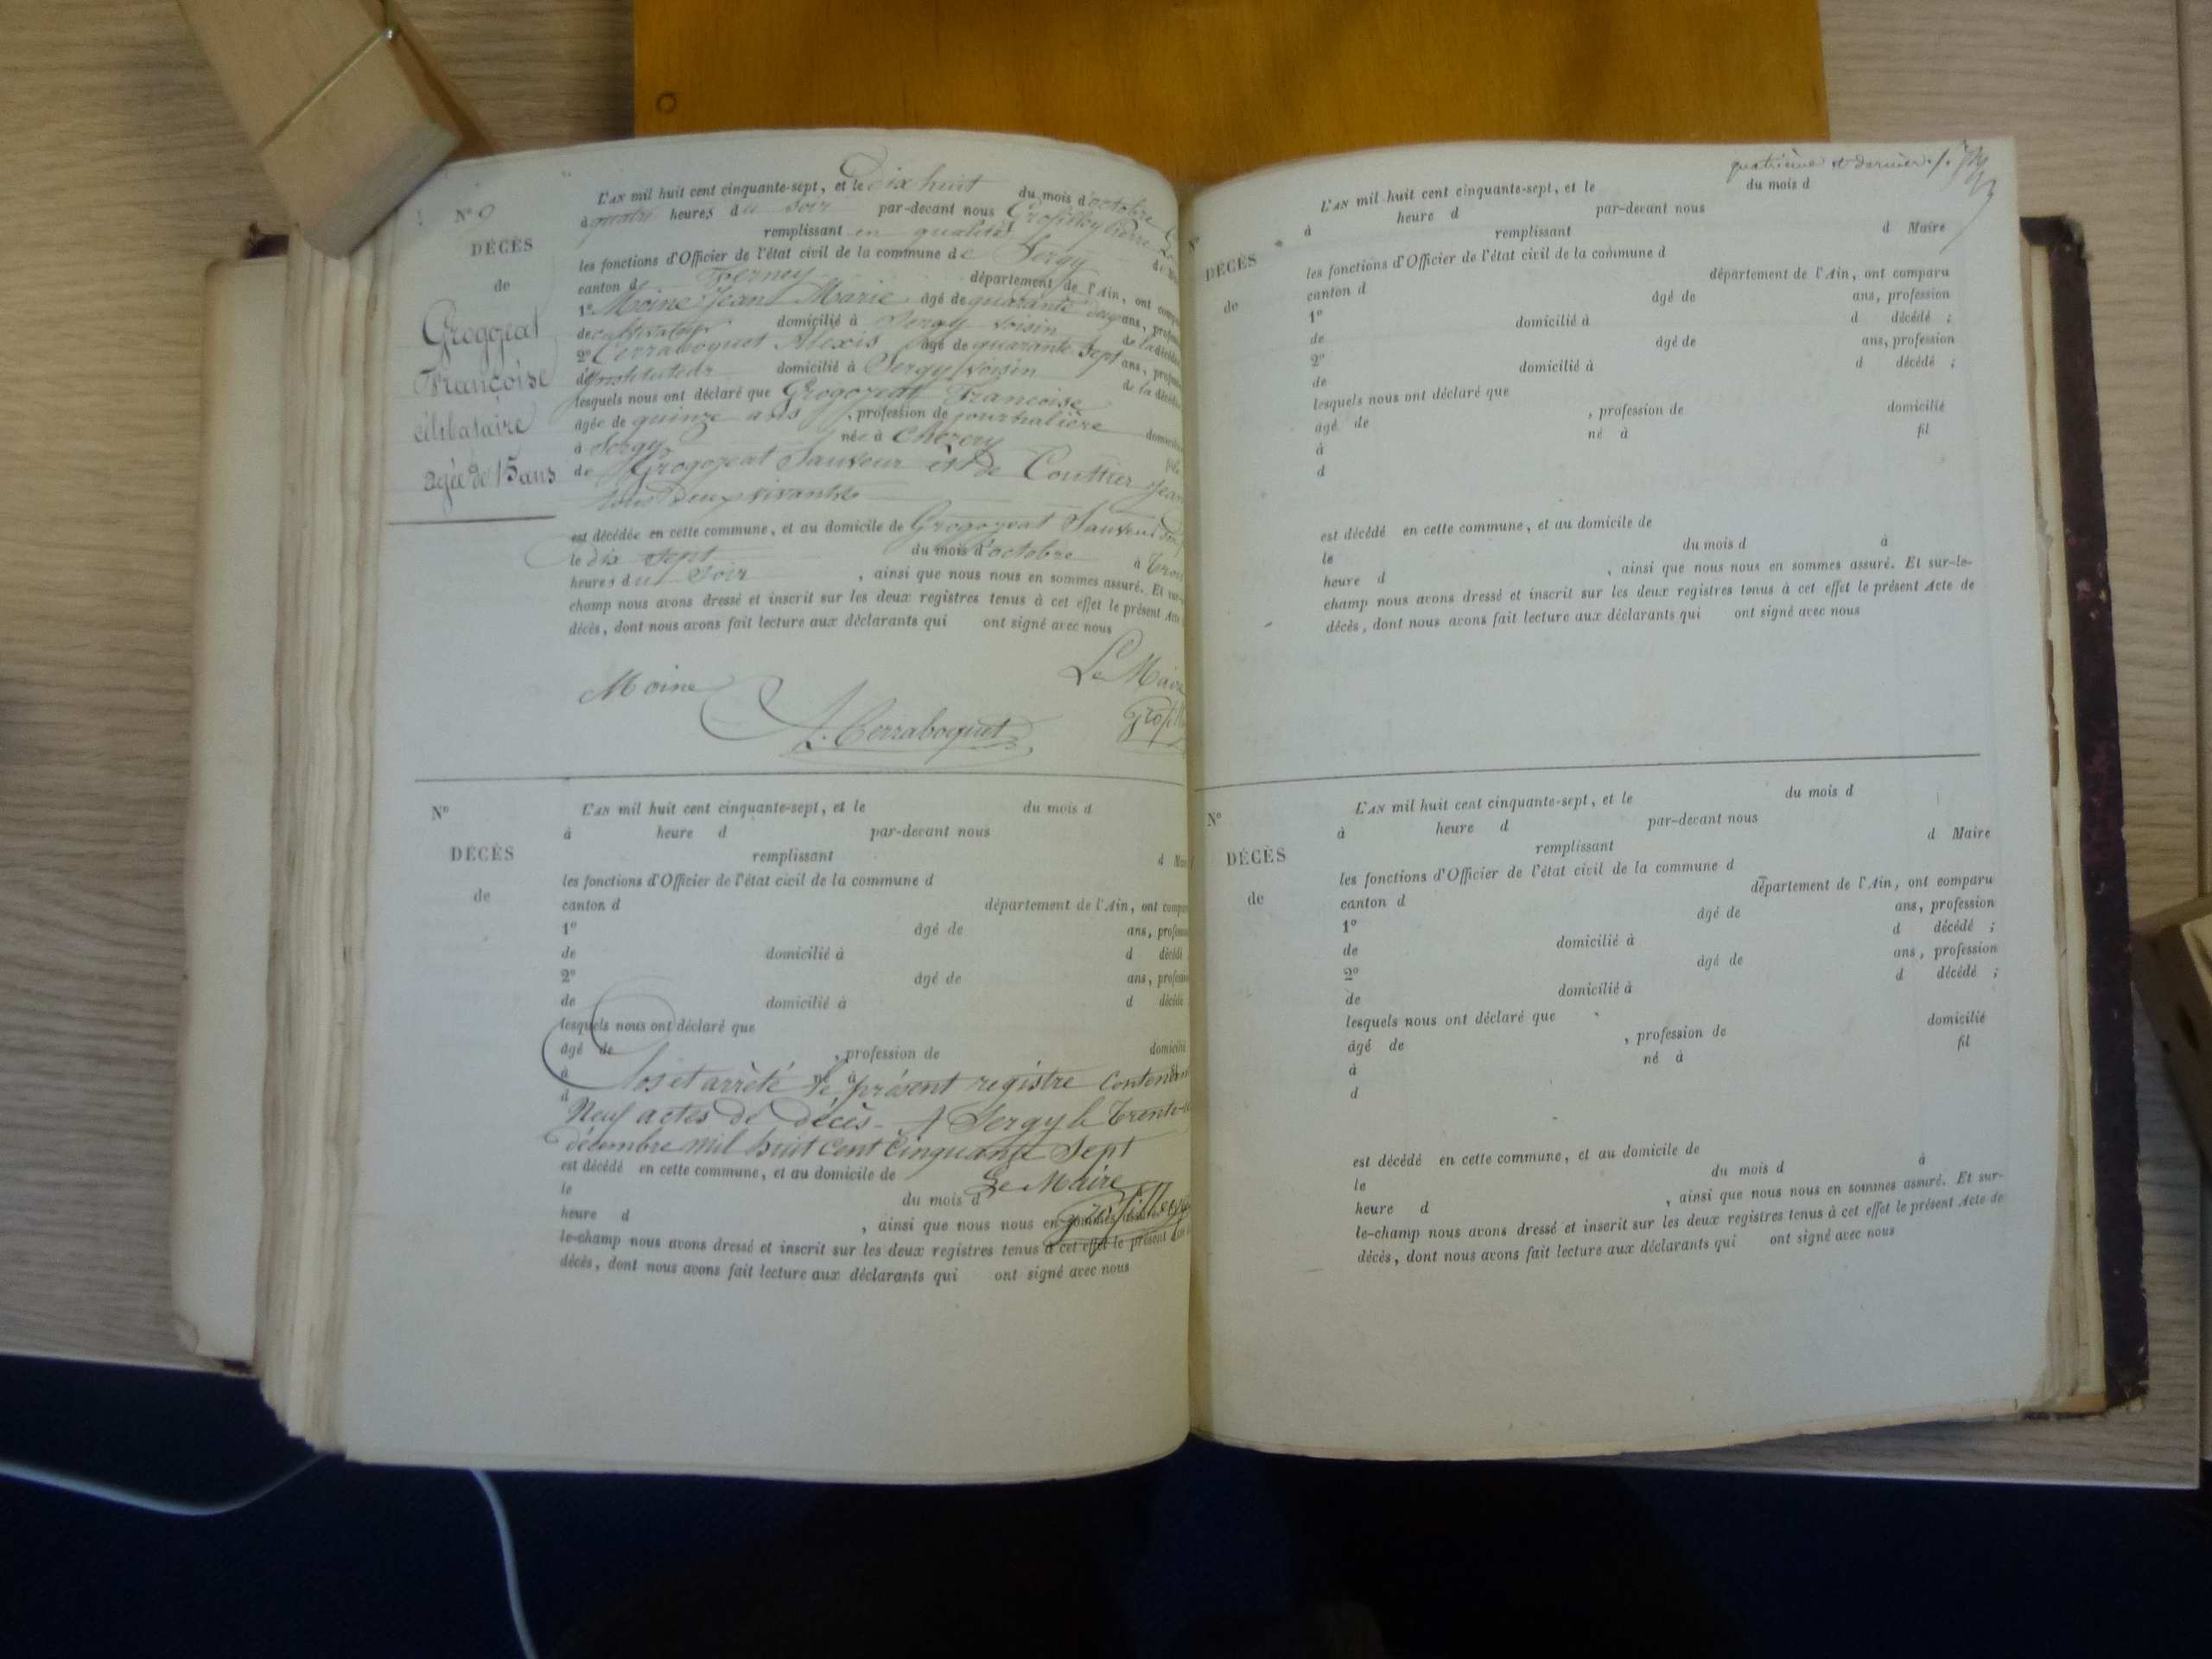 N° 9
DÉCÈS
de
Grogozeat
Françoise
célibataire
agée de 15 ans
L'AN mil huit cent cinquante-sept, et le dix huit du mois d'octobre
à quatre heures du soir par-devant nous Grosfilley Pierre
remplissant en qualité
les fonctions d'Officier de l'état civil de la commune de Sergy
canton d Ferney département de l'Ain, ont comp
1° Moine Jean Marie, âgé de quarante deux ans, profes
de cultivateur domicilié à Sergy voisin de la décédée
2° Cerraboquet Alexis âgé de quarante sept ans, profes
de instituteur domicilié à Sergy voisin de la décédée
lesquels nous ont déclaré que Grogozeat Francoise
agée de quinze ans, profession de journalière domicil
à Sergy née à Chézery fille
de Grogozeat Sauveur et de Couttier Jean
tous deux vivants
est décédée en cette commune, et au domicile de Grogozeat Sauveur
le dix sept du mois d'octobre à trois
heures du soir, ainsi que nous nous en sommes assuré. Et sur-
champ nous avons dressé et inscrit sur les deux registres tenus à cet effet le présent Acte
décès, dont nous avons fait lecture aux déclarants qui ont signé avec nous
Moine
Le Maire
A. Cerraboquet
Grosfill
N°
DÉCÈS
de
L'AN mil huit cent cinquante-sept, et le du mois d
à heure d par-devant nous
remplissant d Mai
les fonctions d'Officier de l'état civil de la commune d
canton d département de l'Ain, ont compar
1° âgé de ans, profession
de domicilié à d décédé
2° âgé de ans, profession
de domicilié à d décédé
lesquels nous ont déclaré que
âgé de , profession de domicilié
à né à fil
d
Clos et arrêté le présent registre contenant
Neuf actes de décès - A Sergy le trente-
décembre mil huit cent cinquante sept
est décédé en cette commune, et au domicile de
Le Maire
le du mois d
Grosfilley
heure d , ainsi que nous nous en sommes assuré
le-champ nous avons dressé et inscrit sur les deux registres tenus à cet effet le présent
décès, dont nous avons fait lecture aux déclarants qui ont signé avec nous
quatrième et dernier /.
N°
DÉCÈS
de
L'AN mil huit cent cinquante-sept, et le du mois d
à heure d par-devant nous
remplissant d Maire
les fonctions d'Officier de l'état civil de la commune d
canton d département de l'Ain, ont comparu
1° âgé de ans, profession
de domicilié à d décédé ;
2° âgé de ans, profession
de domicilié à d décédé ;
lesquels nous ont déclaré que
âgé de , profession de domicilié
à né à fil
d
est décédé en cette commune, et au domicile de
le du mois d à
heure d , ainsi que nous nous en sommes assuré. Et sur-le-
champ nous avons dressé et inscrit sur les deux registres tenus à cet effet le présent Acte de
décès, dont nous avons fait lecture aux déclarants qui ont signé avec nous
N°
DÉCÈS
de
L'AN mil huit cent cinquante-sept, et le du mois d
à heure d par-devant nous
remplissant d Maire
les fonctions d'Officier de l'état civil de la commune d
canton d département de l'Ain, ont comparu
1° âgé de ans, profession
de domicilié à d décédé ;
2° âgé de ans, profession
de domicilié à d décédé ;
lesquels nous ont déclaré que
âgé de , profession de domicilié
à né à fil
d
est décédé en cette commune, et au domicile de
le du mois d à
heure d , ainsi que nous nous en sommes assuré. Et sur-
le-champ nous avons dressé et inscrit sur les deux registres tenus à cet effet le présent Acte de
décès, dont nous avons fait lecture aux déclarants qui ont signé avec nous